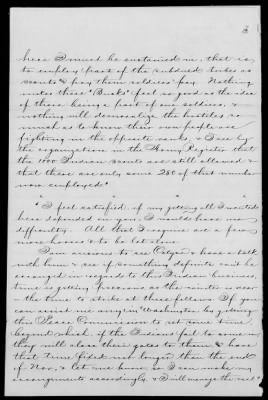 3
here I must be sustained in, that is,
to employ part of the subdued tribes as
scouts & pay them soldiers' pay. Nothing
makes these "Bucks" feel so good as the idea
of those being a part of our soldiers, &
nothing will demoralize the hostiles so
much as to know their own people are
fighting in the opposite ranks. I see by
the organization in the Army Register that
the 1000 Indian scouts are still allowed &
that there are only some 280 of that number
now employed."
"I feel satisfied if my getting all I wanted
here depended on you, I would have no
difficulty. All that I require are a few
more horses & to be let alone.
I am anxious to see Colyer & have a talk
with him & see if something definite can't be
arranged in regards to this Indian business
time is getting precious as the winter is near
the time to strike at these fellows. If you
can assist me any in Washington by getting
this Peace Commission to set some time
beyond which if the Indians fail to come in,
they will close their gates to them & have
that time fixed not longer than the end
of Nov., & let me know so I can make my
arrangements accordingly, & I will manage the rest."